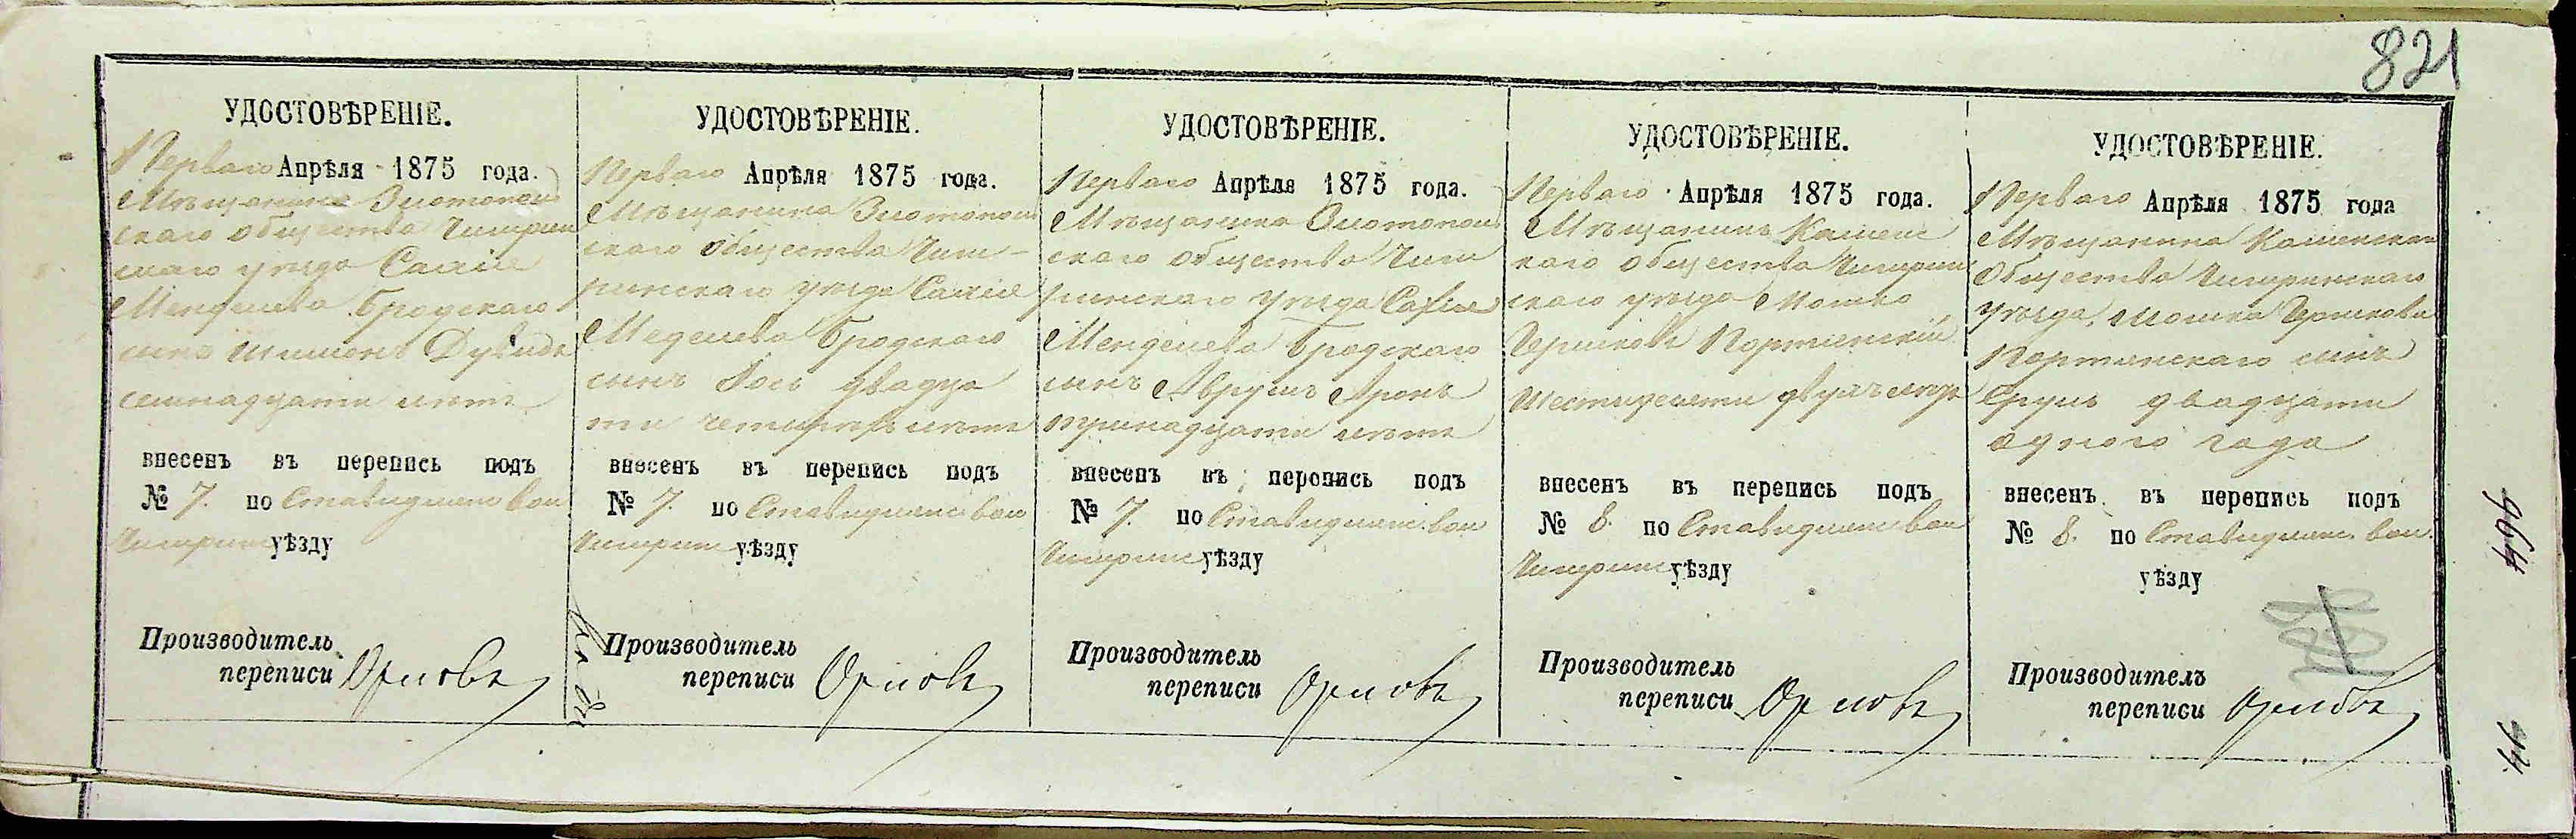 821
УДОСТОВѢРЕНІЕ.
Перваго Апрѣля 1875 года.
Мѣщанина Златополь
скаго общества Чигирин
скаго уѣзда
Менделева Бродскаго
сынъ Шимонъ Дувидъ
семнадцати лѣтъ
внесенъ въ перепись подъ
№ 7. по Ставидлянс вол
Чигирин уѣзду
Производитель
переписи Орловъ
УДОСТОВѢРЕНІЕ.
Перваго Апрѣля 1875 года.
Мѣщанина Златополь
скаго общества Чиги-
ринскаго уѣзда
Меделева Бродскаго
сынъ Іось двадца
ти четырехъ лѣтъ
внесенъ въ перепись подъ
№ 7. по Ставидлянс вол
Чигирин уѣзду
Производитель
переписи Орловъ
УДОСТОВѢРЕНІЕ.
Перваго Апрѣля 1875 года.
Мѣщанина Златополь
скаго общества Чиги
ринскаго уѣзда
Менделева Бродскаго
сынъ Аврумъ Аронъ
тринадцати лѣтъ
внесенъ въ перепись подъ
№ 7. по Ставидлянс. вол
Чигирин уѣзду
Производитель
переписи Орловъ
УДОСТОВѢРЕНІЕ.
Перваго Апрѣля 1875 года.
Мѣщанинъ Каменс
каго общества Чигирин
скаго уѣзда Мошко
Гершковъ Портянскій
Шестидесяти двухъ лѣтъ
внесенъ въ перепись подъ
№ 8. по Ставидлянс вол
Чигирин уѣзду
Производитель
переписи Орловъ
УДОСТОВѢРЕНІЕ.
Перваго Апрѣля 1875 года
Мѣщанина Каменскаго
Общества Чигиринскаго
уѣзда, Мошка Гершкова
Портянскаго сынъ
Сруль двадцати
одного года
внесенъ въ перепись подъ
№ 8. по Ставидлянс. вол.
уѣзду
Производитель
переписи Орловъ